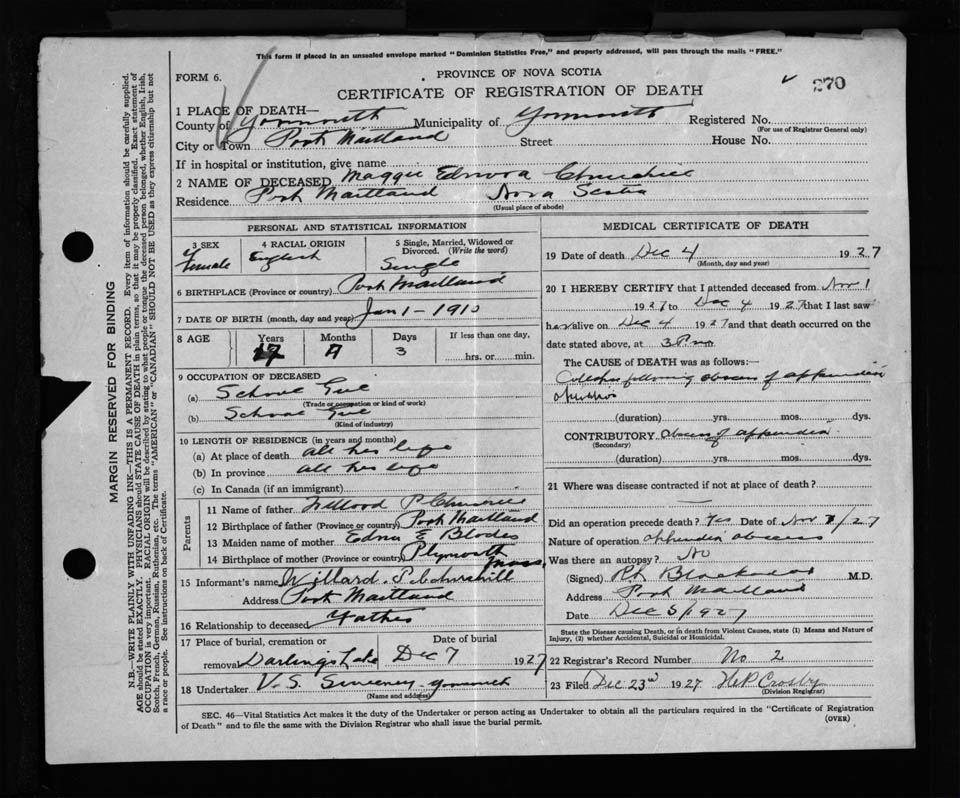 This form if placed in an unsealed envelope marked "Dominion Statistics Free," and properly addressed, will pass through the mails "FREE."
FORM 6.
PROVINCE OF NOVA SCOTIA
270
CERTIFICATE OF REGISTRATION OF DEATH
1 PLACE OF DEATH—
County of Yarmouth Municipality of Yarmouth Registered No.
(For use of Registrar General only)
City or Town Port Maitland Street House No.
If in hospital or institution, give name
2 NAME OF DECEASED Maggie Churchill
Residence Port Maitland Nova Scotia
(Usual place of abode)
PERSONAL AND STATISTICAL INFORMATION
3 SEX 4 RACIAL ORIGIN 5 Single, Married, Widowed or Divorced. (Write the word)
Female English Single
6 BIRTHPLACE (Province or country) Port Maitland
7 DATE OF BIRTH (month, day and year) Jan 1 - 1910
8 AGE Years Months Days If less than one day,
17 3 hrs. or min.
9 OCCUPATION OF DECEASED
(a) School Girl
(Trade or occupation or kind of work)
(b) School Girl
(Kind of industry)
10 LENGTH OF RESIDENCE (in years and months)
(a) At place of death all her life
(b) In province all her life
(c) In Canada (if an immigrant)
Parents
11 Name of father P Churchill
12 Birthplace of father (Province or country) Port Maitland
13 Maiden name of mother Edna E
14 Birthplace of mother (Province or country) Plymouth Mass.
15 Informant's name Willard P. Churchill
Address Port Maitland
16 Relationship to deceased Father
17 Place of burial, cremation or removal Darlings Lake Date of burial Dec 7 1927
18 Undertaker V. S. Sweeney Yarmouth
(Name and address)
MEDICAL CERTIFICATE OF DEATH
19 Date of death Dec 4 1927
(Month, day and year)
20 I HEREBY CERTIFY that I attended deceased from Nov 1
1927 to Dec 4 1927 that I last saw
her alive on Dec 4 1927 and that death occurred on
date stated above, at 3 P.m.
The CAUSE of DEATH was as follows:
following abscess of appendix
(duration) yrs. mos. dys.
CONTRIBUTORY Abscess of appendix
(Secondary)
(duration) yrs. mos. dys.
21 Where was disease contracted if not at place of death?
Did an operation precede death? Yes Date of Nov /27
Nature of operation appendix abscess
Was there an autopsy? No
(Signed) M.D.
Address Port Maitland
Date Dec 5/1927
State the Disease causing Death, or in death from Violent Causes, state (1) Means and Nature of
Injury, (2) whether Accidental, Suicidal or Homicidal.
22 Registrar's Record Number No 2
23 Filed Dec 23rd 1927 Crosby
(Division Registrar)
SEC. 46—Vital Statistics Act makes it the duty of the Undertaker or person acting as Undertaker to obtain all the particulars required in the "Certificate of Registration
of Death" and to file the same with the Division Registrar who shall issue the burial permit.
(OVER)
MARGIN RESERVED FOR BINDING
N.B.—WRITE PLAINLY WITH UNFADING INK—THIS IS A PERMANENT RECORD. Every item of information should be carefully supplied.
AGE should be stated EXACTLY. PHYSICIANS should STATE CAUSE OF DEATH in plain terms, so that it may be properly classified. Exact statement of
OCCUPATION is very important. RACIAL ORIGIN will be described by stating to what people or tongue the deceased person belonged, whether English, Irish,
Scotch, French, German, Russian, Ruthenian, etc. The terms "AMERICAN" or "CANADIAN" SHOULD NOT BE USED as they express citizenship but not
a race or people. See instructions on back of Certificate.